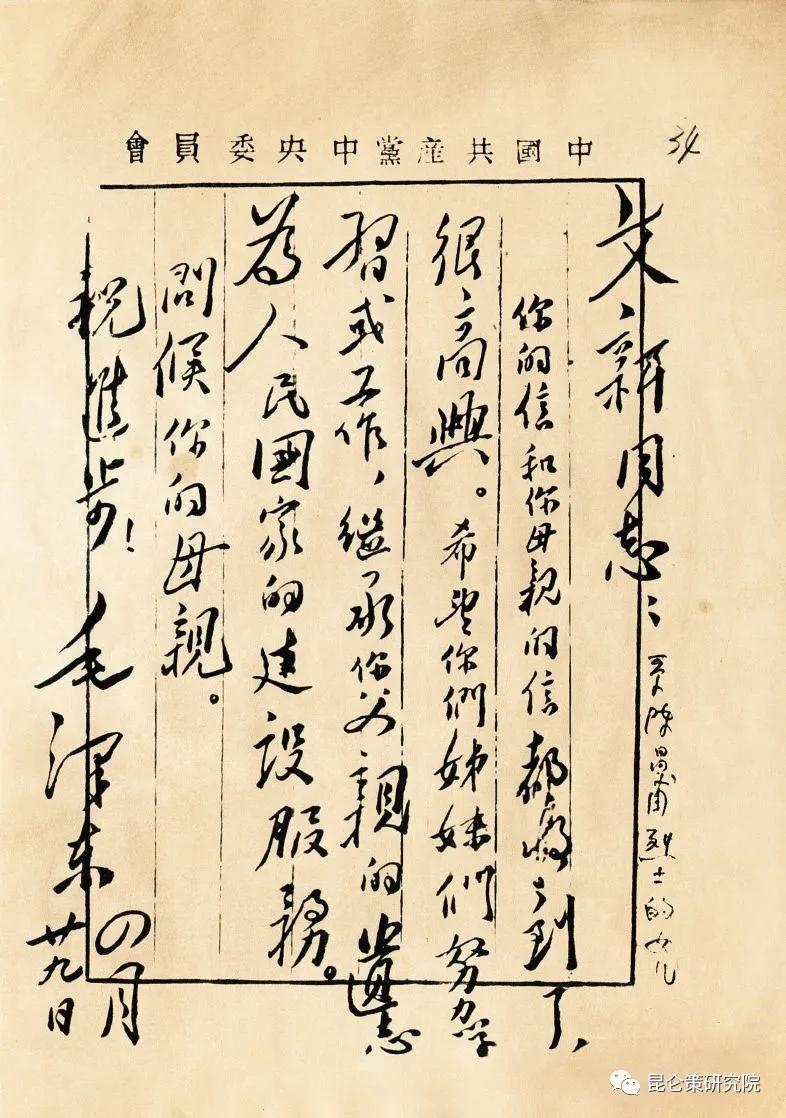 中國共產黨中央委員會
34
文新同志：
系陈昌甫烈士的女儿
你的信和你母親的信都收到了、
很高興。希望你們姊妹們努力學
習或工作、繼承你父親的遺志
為人民國家的建設服務。
問候你的母親。
祝進步！毛澤东
四月
廿九日
昆仑策研究院